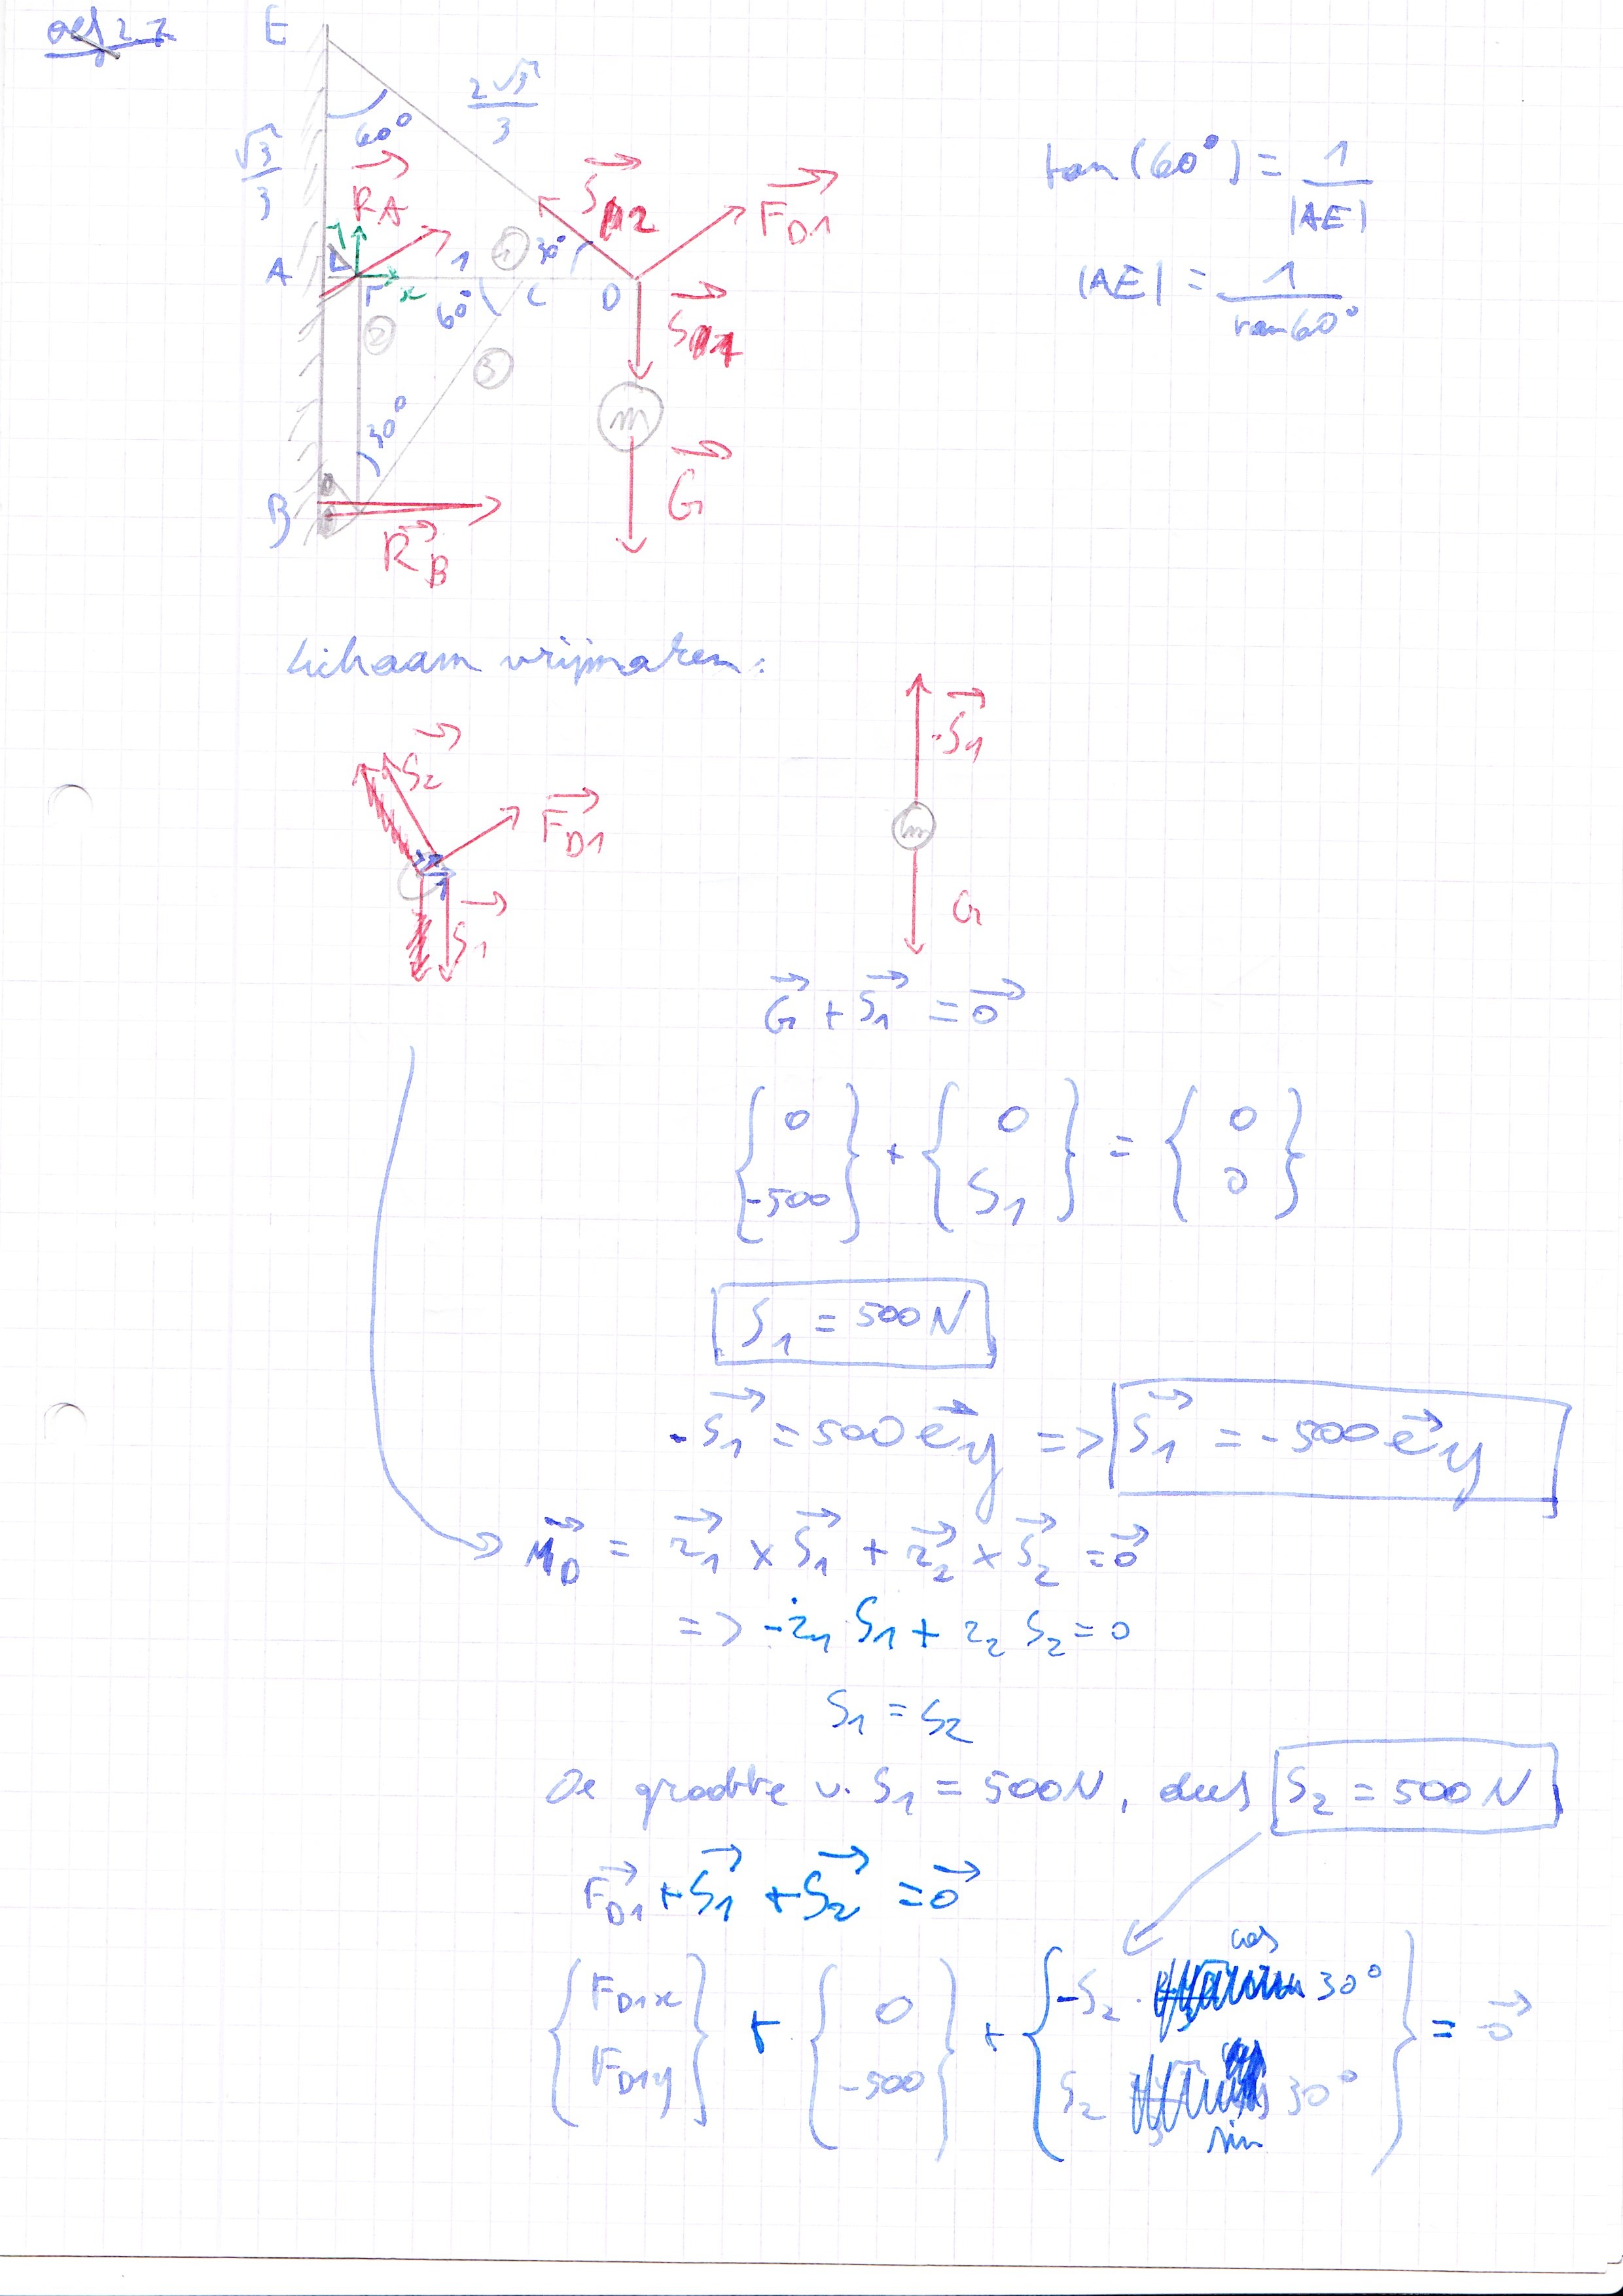 oef 2.7
E
60°
2√3/3
√3/3
tan(60°) = 1/|AE|
|AE| = 1/tan60°
R_A
S_2
F_D1
y
A
1
1
30°
x
60°
C
D
S_1
2
3
30°
m
G
B
R_B
Lichaam vrijmaken:
S_2
F_D1
S_1
-S_1
m
G
G + S_1 = 0
{0 -500} + {0 S_1} = {0 0}
S_1 = 500N
-S_1 = 500 e_y => S_1 = -500 e_y
M_D = r_1 x S_1 + r_2 x S_2 = 0
=> -r_1 S_1 + r_2 S_2 = 0
S_1 = S_2
De grootte v. S_1 = 500N, dus S_2 = 500N
F_D1 + S_1 + S_2 = 0
{F_D1x F_D1y} + {0 -500} + {-S_2 . cos 30° S_2 sin 30°} = 0